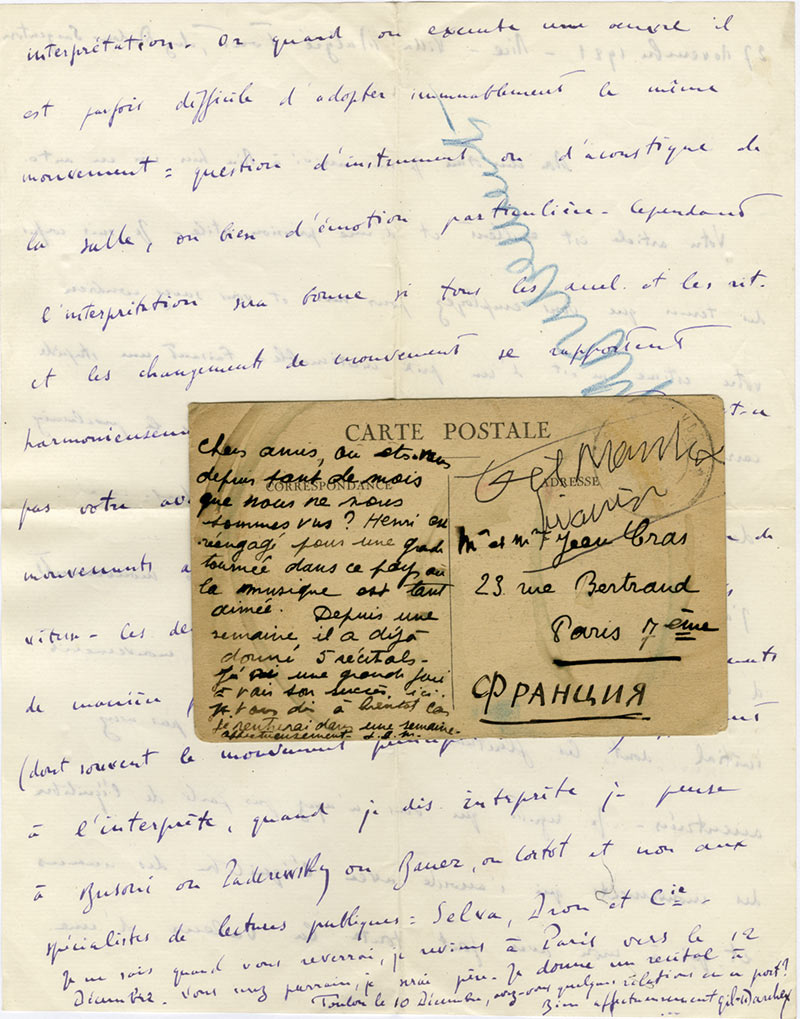 interprétation - Or quand on execute une oeuvre il
est parfois difficile d'adopter immuablement le même
mouvement = question d'instrument ou d'acoustique de
la salle, ou bien d'émotion particulière - Cependant
l'interprétation sera bonne si tous les accel. et les rit.
et les changements de mouvement se rapportent
harmonieusem
pas votre av
mouvements a
de
vitesse - Ces de
de manière
(dont souvent le mouvement princip
à l'interprète, quand je dis interprète je pense
à Busoni ou Paderewsky ou Bauer, ou Cortot et non aux
spécialistes de lectures publiques = Selva, Dron et Cie -
Je ne sais quand vous reverrai, je reviens à Paris vers le 12
Décembre - Vous mez parrain, je serai père - Je donne un récital à
Toulon le 10 Décembre, avez-vous quelques relations en ce port?
Bien affectueusement Gil-Marchex
CARTE POSTALE
CORRESPONDANCE
Chers amis, ou etes-vous
depuis tant de mois
que nous ne nous
sommes vus? Henri est
réengagé pour une grande
tournée dans ce pays ou
la musique est tant
aimée. Depuis une
semaine il a déjà
donné 5 récitals -
J'ai une grande joie
à voir son succès ici.
Je vous dis à bientôt car
je rentrerai dans une semaine -
affectueusement
ADRESSE
Gil Marchex
Mr et Mme Jean Cras
23 rue Bertrand
Paris 7ème
ФРАНЦИЯ